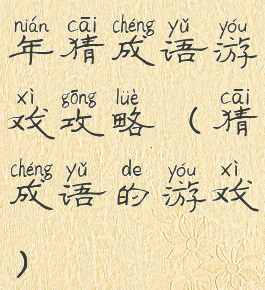 nián cāi chéng yǔ yóu
年猜成语游
xì gōng lüè cāi
戏攻略（猜
chéng yǔ de yóu xì
成语的游戏
）